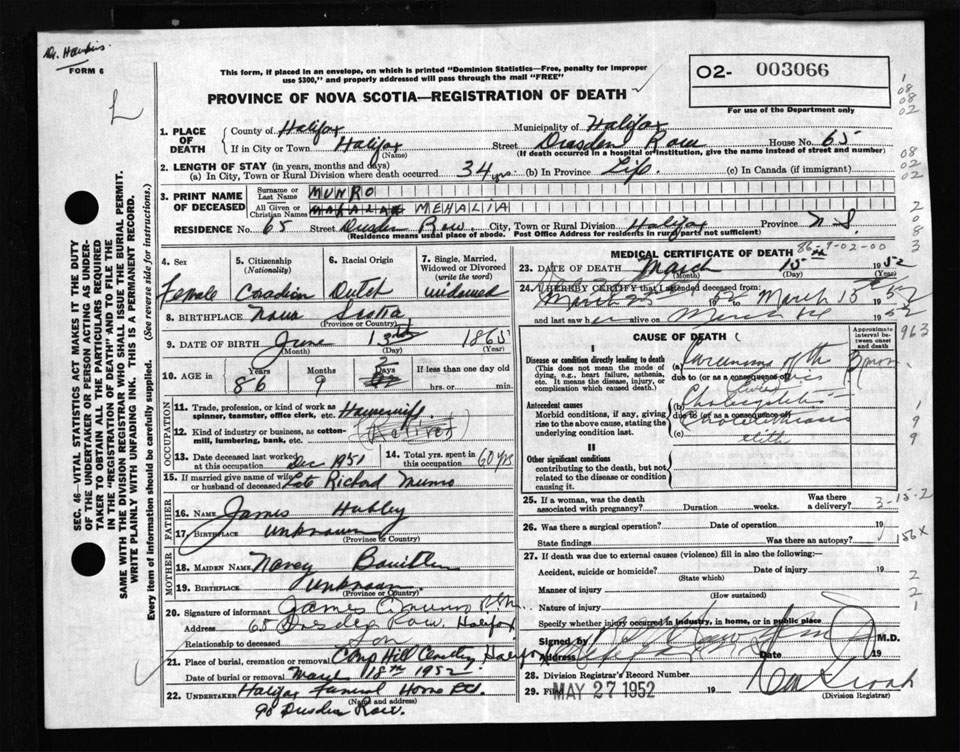 Dr. Hawkins.
FORM 6
This form, if placed in an envelope, on which is printed "Dominion Statistics—Free, penalty for improper
use $300," and properly addressed will pass through the mail "FREE"
PROVINCE OF NOVA SCOTIA—REGISTRATION OF DEATH
O2- 003066
For use of the Department only
SEC. 46—VITAL STATISTICS ACT MAKES IT THE DUTY
OF THE UNDERTAKER OR PERSON ACTING AS UNDER-
TAKER TO OBTAIN ALL THE PARTICULARS REQUIRED
IN THE "REGISTRATION OF DEATH" AND TO FILE THE
SAME WITH THE DIVISION REGISTRAR WHO SHALL ISSUE THE BURIAL PERMIT.
WRITE PLAINLY WITH UNFADING INK. THIS IS A PERMANENT RECORD.
Every item of information should be carefully supplied. (See reverse side for instructions.)
1. PLACE OF DEATH
County of Halifax Municipality of Halifax
If in City or Town Halifax (Name) Street Dresden Row House No. 65
(If death occurred in a hospital or institution, give the name instead of street and number)
2. LENGTH OF STAY (in years, months and days)
(a) In City, Town or Rural Division where death occurred 34 yrs. (b) In Province Life. (c) In Canada (if immigrant)
3. PRINT NAME OF DECEASED
Surname or Last Name MUNRO
All Given or Christian Names MEHALIA
RESIDENCE No. 65 Street Dresden Row. City, Town or Rural Division Halifax Province N.S.
(Residence means usual place of abode. Post Office Address for residents in rural parts not sufficient)
4. Sex Female
5. Citizenship (Nationality) Canadian
6. Racial Origin Dutch
7. Single, Married, Widowed or Divorced (write the word) widowed
8. BIRTHPLACE Nova Scotia
(Province or Country)
9. DATE OF BIRTH June 13th 1865
(Month) (Day) (Year)
10. AGE 86 Years 9 Months Days If less than one day
hrs. or min.
OCCUPATION
11. Trade, profession, or kind of work as spinner, teamster, office clerk, etc. Housewife.
12. Kind of industry or business, as cotton-mill, lumbering, bank, etc. (Retired)
13. Date deceased last worked at this occupation Dec 1951
14. Total yrs. spent in this occupation 60 yrs
15. If married give name of wife or husband of deceased Late Richard Munro
FATHER
16. Name James Hubley
17. Birthplace Unknown
(Province or Country)
MOTHER
18. MAIDEN NAME Nancy
19. Birthplace Unknown.
(Province or Country)
20. Signature of informant James Munro
Address 65 Dresden Row, Halifax
Relationship to deceased Son
21. Place of burial, cremation or removal Camp Hill Cemetery Halifax
Date of burial or removal March 18th 1952.
22. UNDERTAKER Halifax Funeral Home Ltd.
(Name and address)
90 Dresden Row.
MEDICAL CERTIFICATE OF DEATH
86-9-02-00
23. DATE OF DEATH March 15 1952
(Month) (Day) (Year)
24. I HEREBY CERTIFY that I attended deceased from:
March 52 March 15 52
and last saw her alive on March 52
CAUSE OF DEATH
Approximate interval between onset and death
I
Disease or condition directly leading to death
(This does not mean the mode of dying, e.g., heart failure, asthenia, etc. It means the disease, injury, or complication which caused death.)
(a) Carcinoma of the
due to (or as a consequence of)
Antecedent causes
Morbid conditions, if any, giving rise to the above cause, stating the underlying condition last.
(b)
due to (or as a consequence of)
(c)
II
Other significant conditions
contributing to the death, but not related to the disease or condition causing it.
25. If a woman, was the death associated with pregnancy? Duration weeks. Was there a delivery?
3-15-2
26. Was there a surgical operation? Date of operation 19
State findings Was there an autopsy?
156x
27. If death was due to external causes (violence) fill in also the following:—
Accident, suicide or homicide? Date of injury 19
(State which)
Manner of injury
(How sustained)
Nature of injury
Specify whether injury occurred in industry, in home, or in public place
Signed by M.D.
Address Halifax Date 19
28. Division Registrar's Record Number
29. Filed MAY 27 1952 19
(Division Registrar)